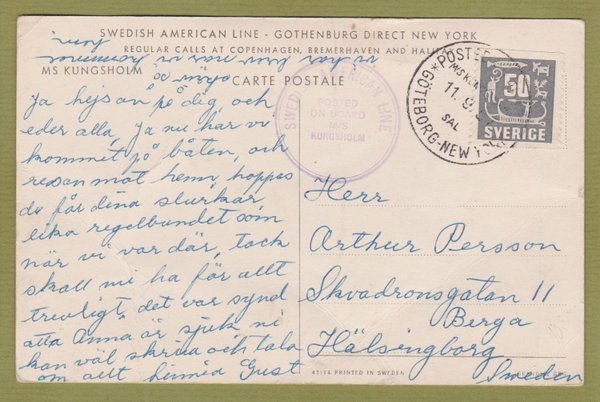 SWEDISH AMERICAN LINE - GOTHENBURG DIRECT NEW YORK
REGULAR CALLS AT COPENHAGEN, BREMERHAVEN AND HALIFAX
MS KUNGSHOLM
CARTE POSTALE
Ja hejsan på dig och
eder alla, Ja nu har vi
kommet på båten, och
resan mot hem, hoppes
du får dina slurkar
lika regelbundet som
när vi var där, tack
skall ni ha för allt
trevligt, det var synd
atta Anna är sjuk ni
kan väl skriva och tala
om allt hemma Gust
SWEDISH AMERICAN LINE
POSTED
ON BOARD
M/S
KUNGSHOLM
GÖTEBORG-NEW YORK
11.
SAL
50
SVERIGE
Herr
Arthur Persson
Skvadronsgatan 11
Berga
Hälsingborg
Sweden
PRINTED IN SWEDEN